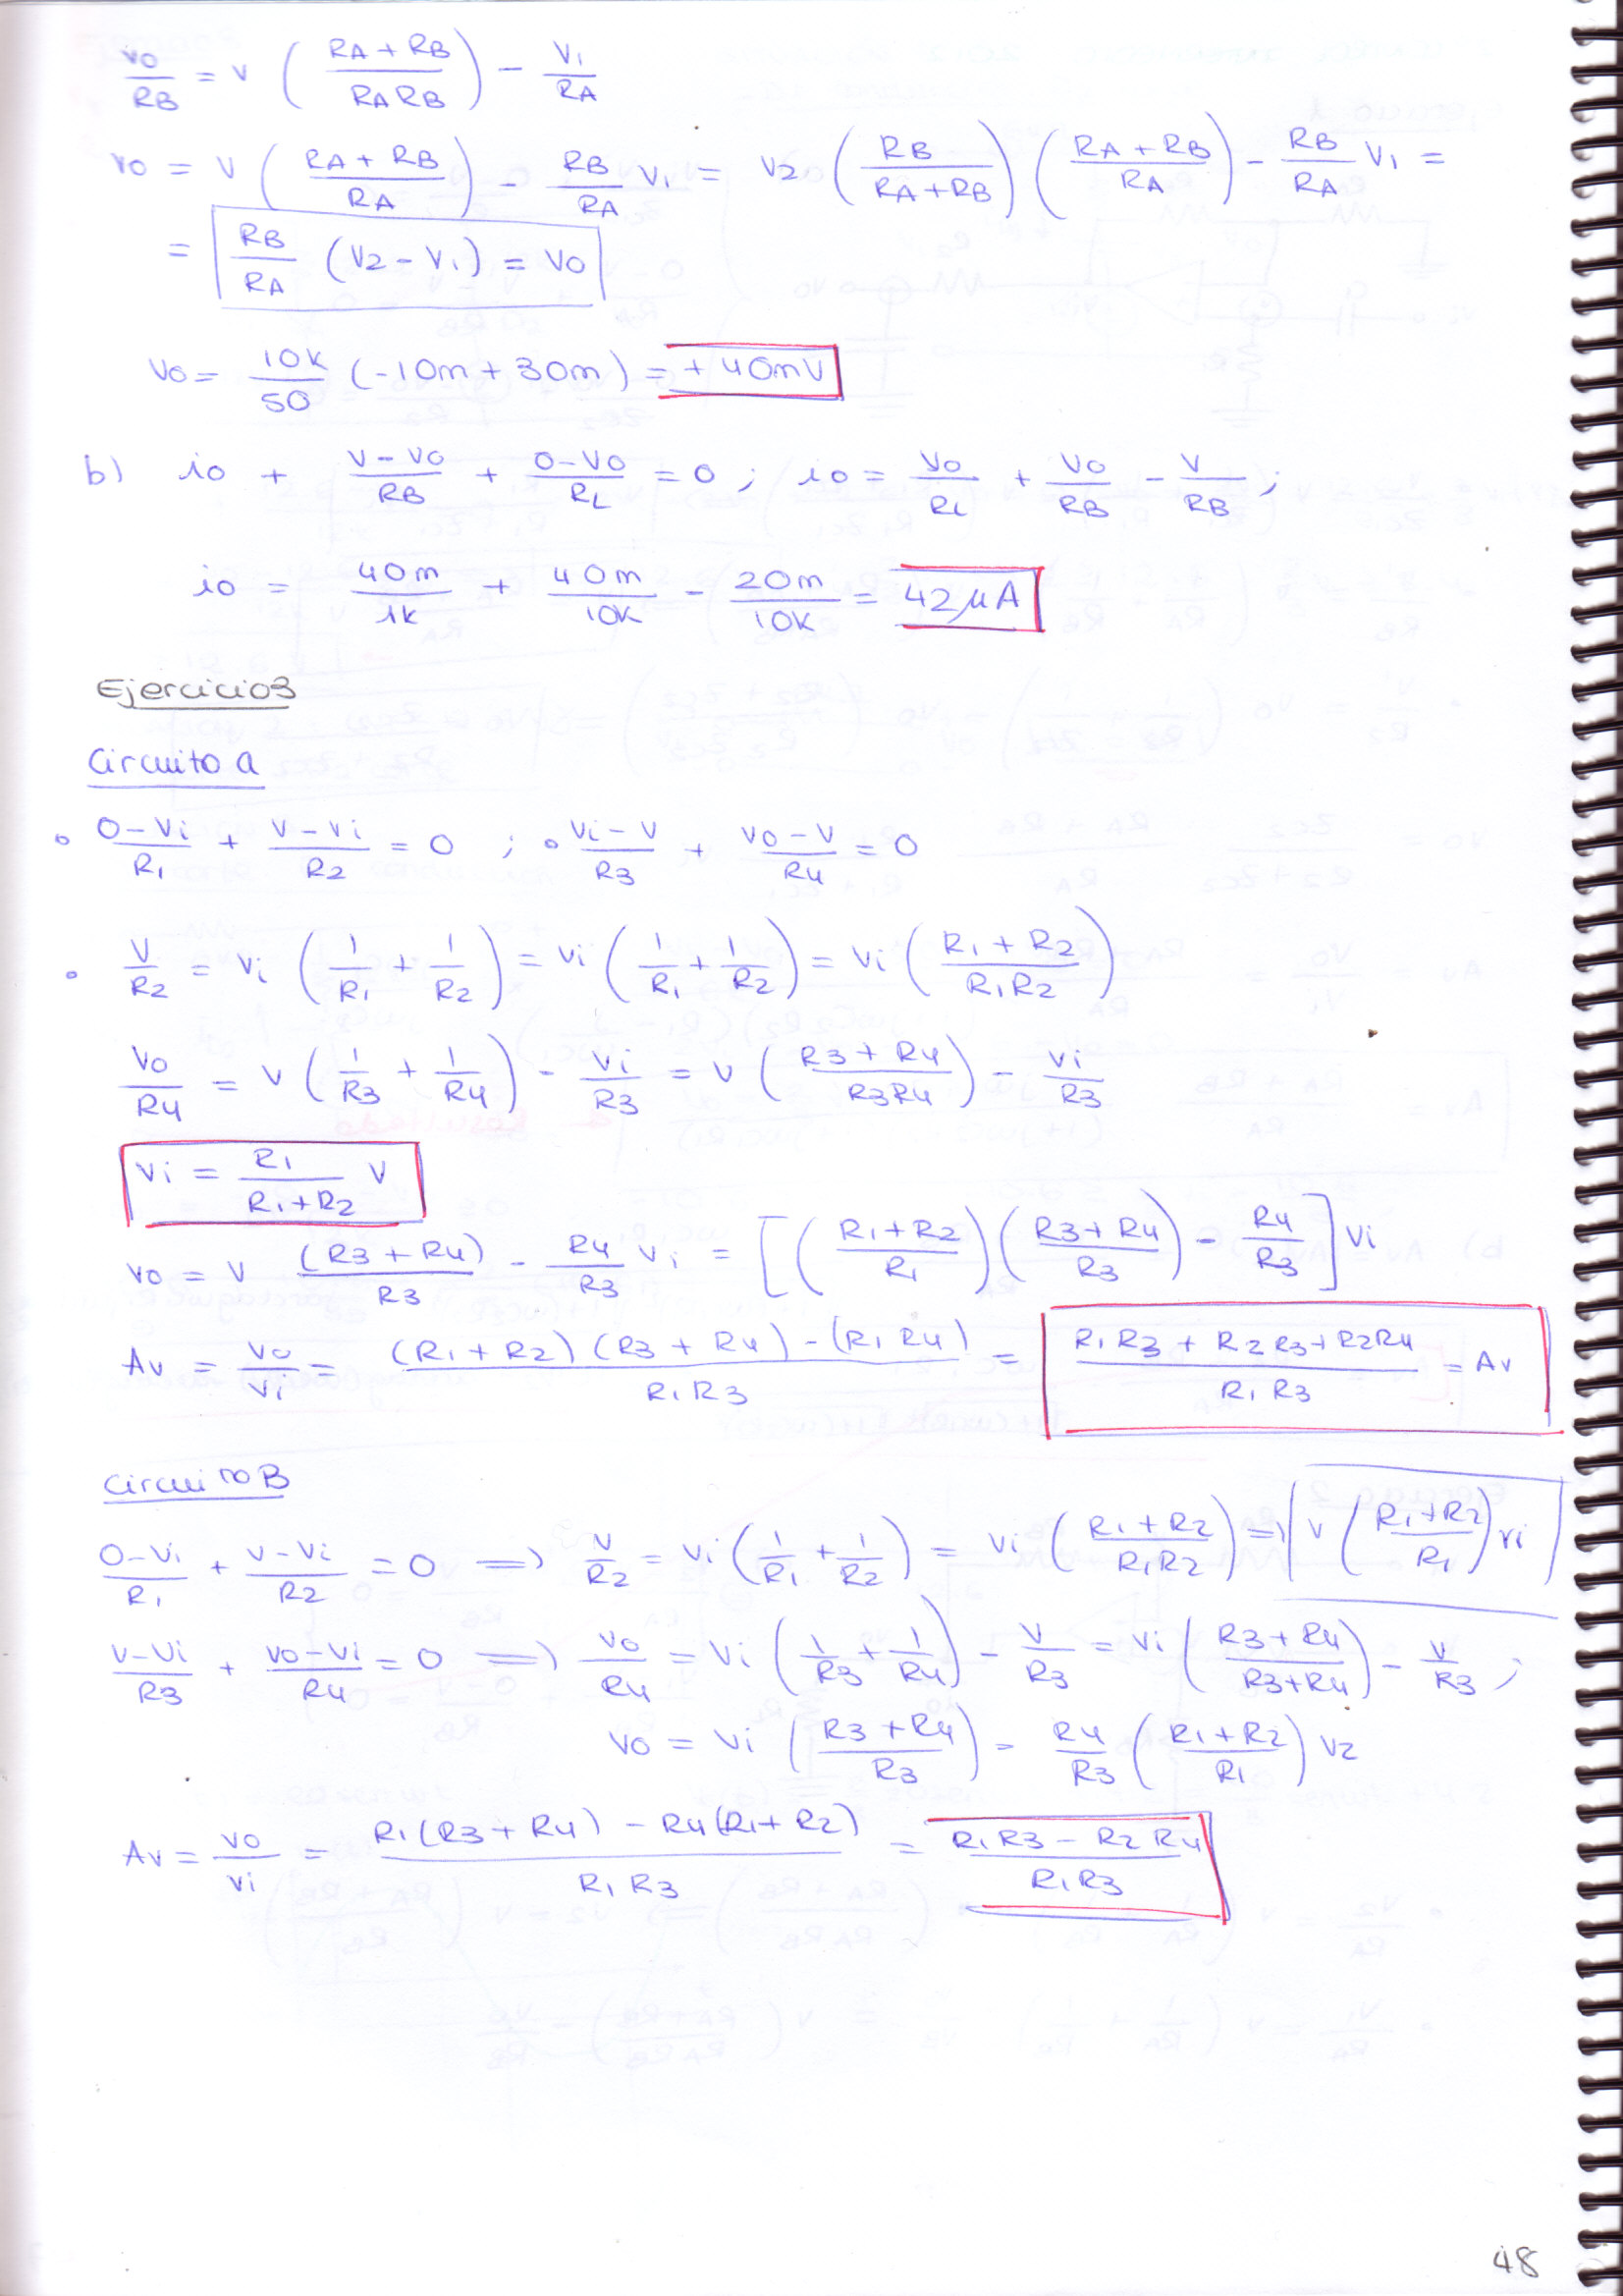 v0/RB = V ( (RA + RB)/(RA RB) ) - V1/RA
v0 = V ( (RA + RB)/RA ) - RB/RA V1 = V2 ( RB/(RA + RB) ) ( (RA + RB)/RA ) - RB/RA V1 =
= RB/RA (V2 - V1) = V0
V0 = 10K/50 (-10m + 30m) = + 40mV
b) i0 + (V - V0)/RB + (0 - V0)/RL = 0 ; i0 = V0/RL + V0/RB - V/RB ;
i0 = 40m/1k + 40m/10K - 20m/10K = 42 μA
Ejercicio3
Circuito a
• (0 - Vi)/R1 + (V - Vi)/R2 = 0 ; • (Vi - V)/R3 + (V0 - V)/R4 = 0
• V/R2 = Vi ( 1/R1 + 1/R2 ) = Vi ( 1/R1 + 1/R2 ) = Vi ( (R1 + R2)/(R1 R2) )
V0/R4 = V ( 1/R3 + 1/R4 ) - Vi/R3 = V ( (R3 + R4)/(R3 R4) ) - Vi/R3
Vi = R1/(R1 + R2) V
V0 = V (R3 + R4)/R3 - R4/R3 Vi = [ ( (R1 + R2)/R1 ) ( (R3 + R4)/R3 ) - R4/R3 ] Vi
Av = V0/Vi = ((R1 + R2) (R3 + R4) - (R1 R4))/(R1 R3) = (R1 R3 + R2 R3 + R2 R4)/(R1 R3) = Av
Circuito B
(0 - Vi)/R1 + (V - Vi)/R2 = 0 => V/R2 = Vi ( 1/R1 + 1/R2 ) = Vi ( (R1 + R2)/(R1 R2) ) => V ( (R1 + R2)/R1 ) Vi
(V - Vi)/R3 + (V0 - Vi)/R4 = 0 => V0/R4 = Vi ( 1/R3 + 1/R4 ) - V/R3 = Vi ( (R3 + R4)/(R3 + R4) ) - V/R3 ;
V0 = Vi ( (R3 + R4)/R3 ) - R4/R3 ( (R1 + R2)/R1 ) V2
Av = V0/Vi = (R1 (R3 + R4) - R4 (R1 + R2))/(R1 R3) = (R1 R3 - R2 R4)/(R1 R3)
48